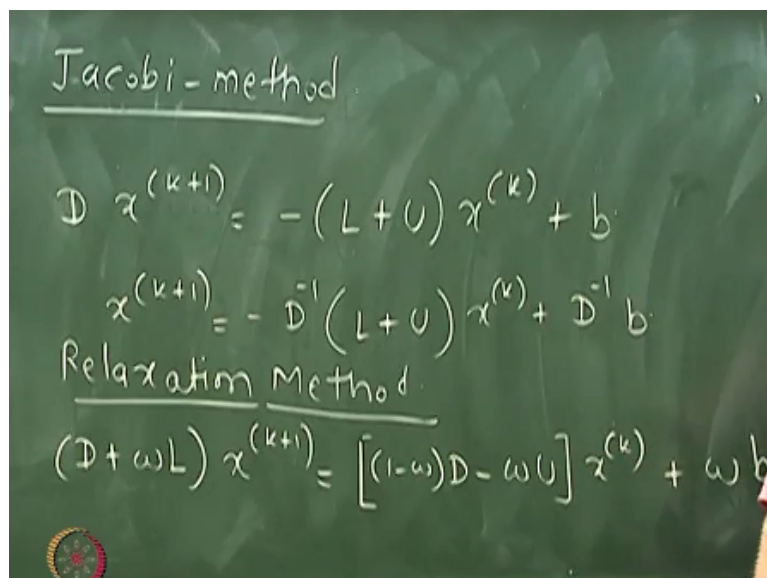 Jacobi-method
D x^(k+1) = -(L+U) x^(k) + b
x^(k+1) = - D^-1 (L+U) x^(k) + D^-1 b
Relaxation Method.
(D+ωL) x^(k+1) = [(1-ω)D - ωU] x^(k) + ωb